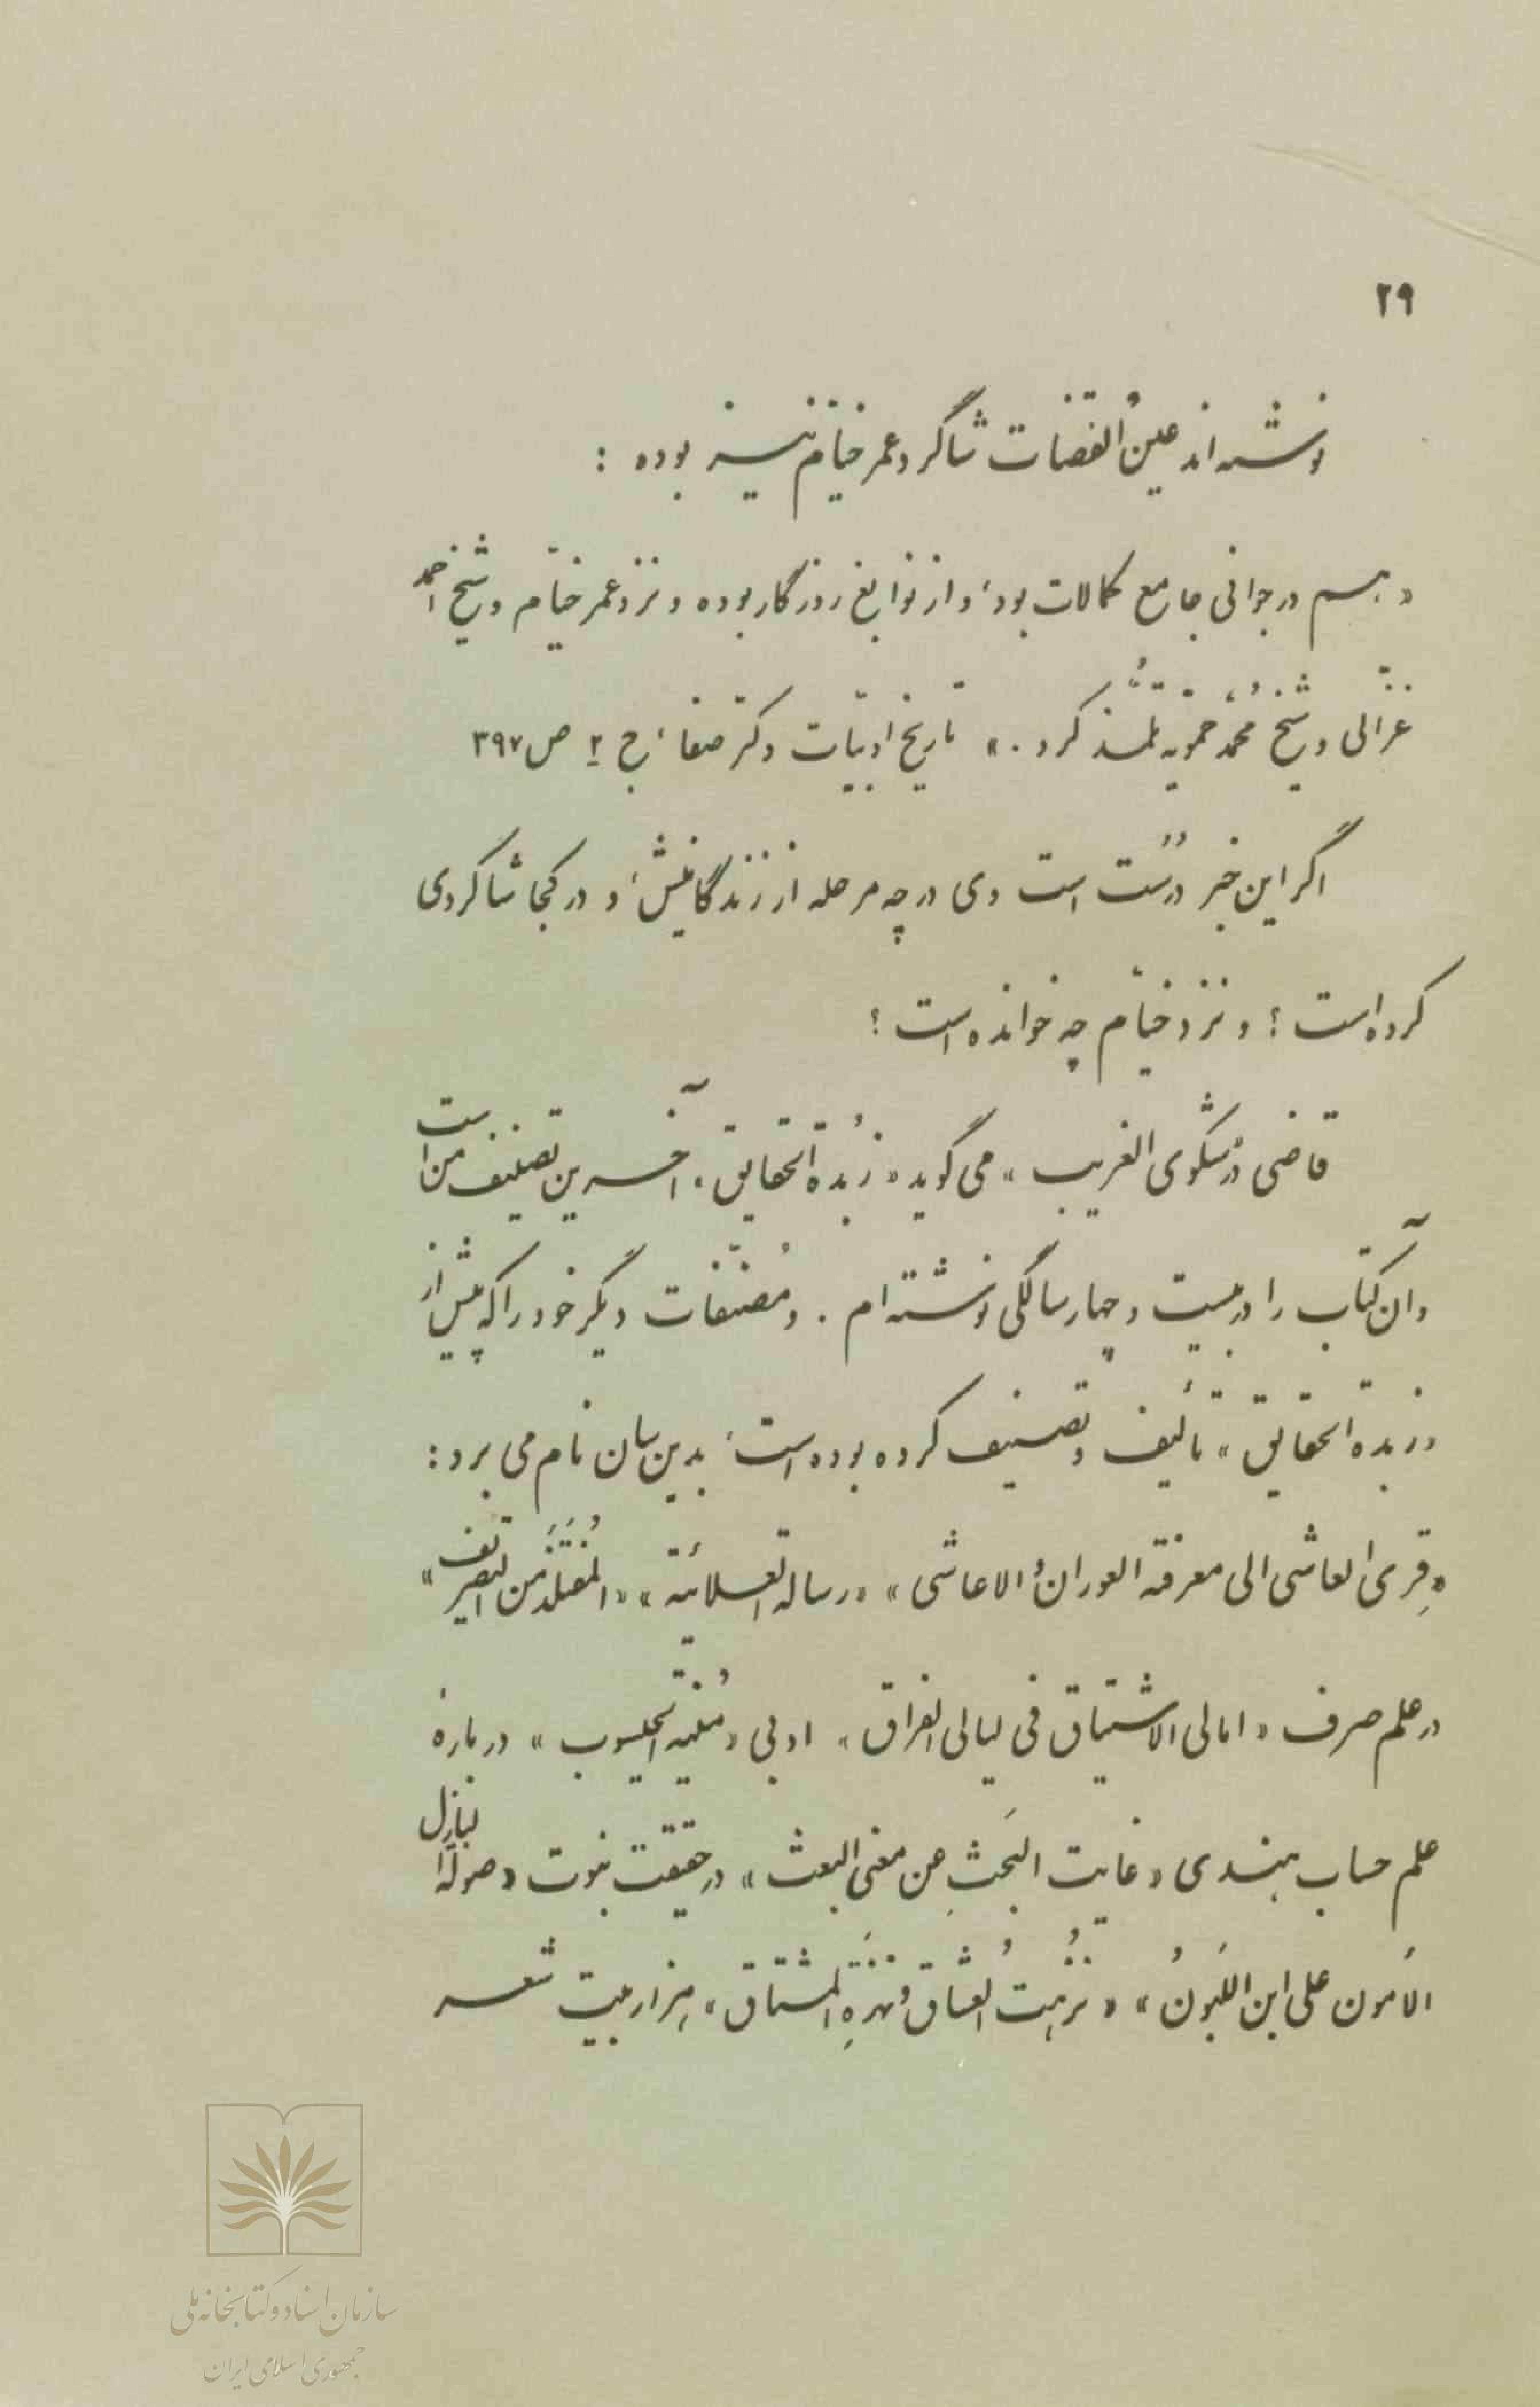 ۲۹
نوشته‌اند عین‌ُالقضات شاگرد عمر خیّام نیز بوده :
« هم در جوانی جامع کمالات بود، و از نوابغ روزگار بوده و نزد عمر خیّام و شیخ احمد
غزّالی و شیخ محُمّد حمّویه تلمُّذ کرد . » تاریخ ادبیّات دکتر صفا، ج ۲ ص ۳۹۷
اگر این خبر درُست است وی در چه مرحله از زندگانیش، و در کجا شاگردی
کرده است ؟ و نزد خیّام چه خوانده است ؟
قاضی در «شکوی الغریب » می گوید « زُبدة الحقایق » آخرین تصنیف من است
و آن کتاب را در بیست و چهار سالگی نوشته ام . و مُصنّفات دیگر خود را که پیش از
« زبدة الحقایق » تألیف و تصنیف کرده بوده است، بدین سان نام می برد :
« قِری العاشی الی معرفة العوران و الاعاشی » « رسالة العلائیة » « المُفتَلَذ من التصریف »
در علم صرف « امالی الاشتیاق فی لیالی الفراق » ادبی « مُنیة الحیسوب » دربارهٔ
علم حساب هندی « غایت البَحثِ عن معنی البعث » در حقیقت نبوت « صولة البازل
الاَمون علی ابن اللَبونُ » « نزُهتُ العُشاق و نهزةِ المشتاق » هزار بیت شعر
سازمان اسناد و کتابخانه ملی
جمهوری اسلامی ایران